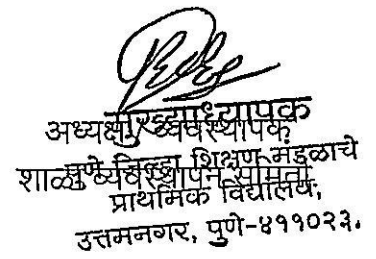 मुख्याध्यापक
अध्यक्ष / व्यवस्थापक
पुणे जिल्हा शिक्षण मंडळाचे
शाळा व्यवस्थापन समिती
प्राथमिक विद्यालय,
उत्तमनगर, पुणे-४११०२३.